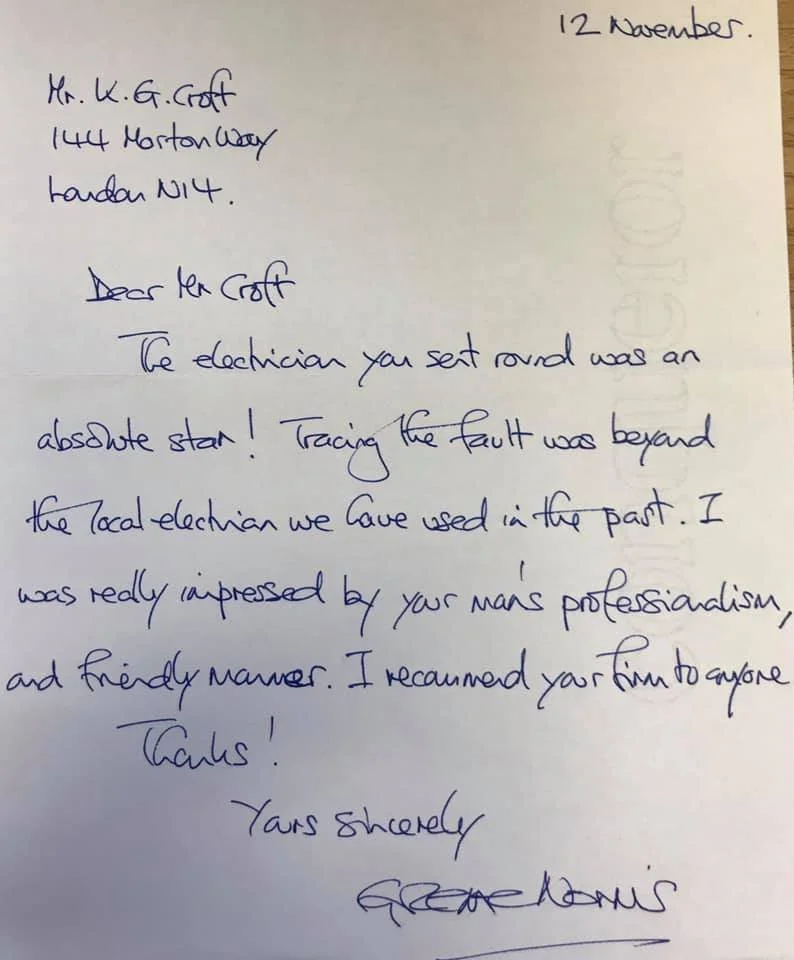 12 November.
Mr. K. G. Croft
144 Morton Way
London N14.
Dear Mr Croft
The electrician you sent round was an
absolute star! Tracing the fault was beyond
the local electrian we have used in the past. I
was really impressed by your man's professionalism,
and friendly manner. I recommend your firm to anyone
Thanks!
Yours sincerely
Norris